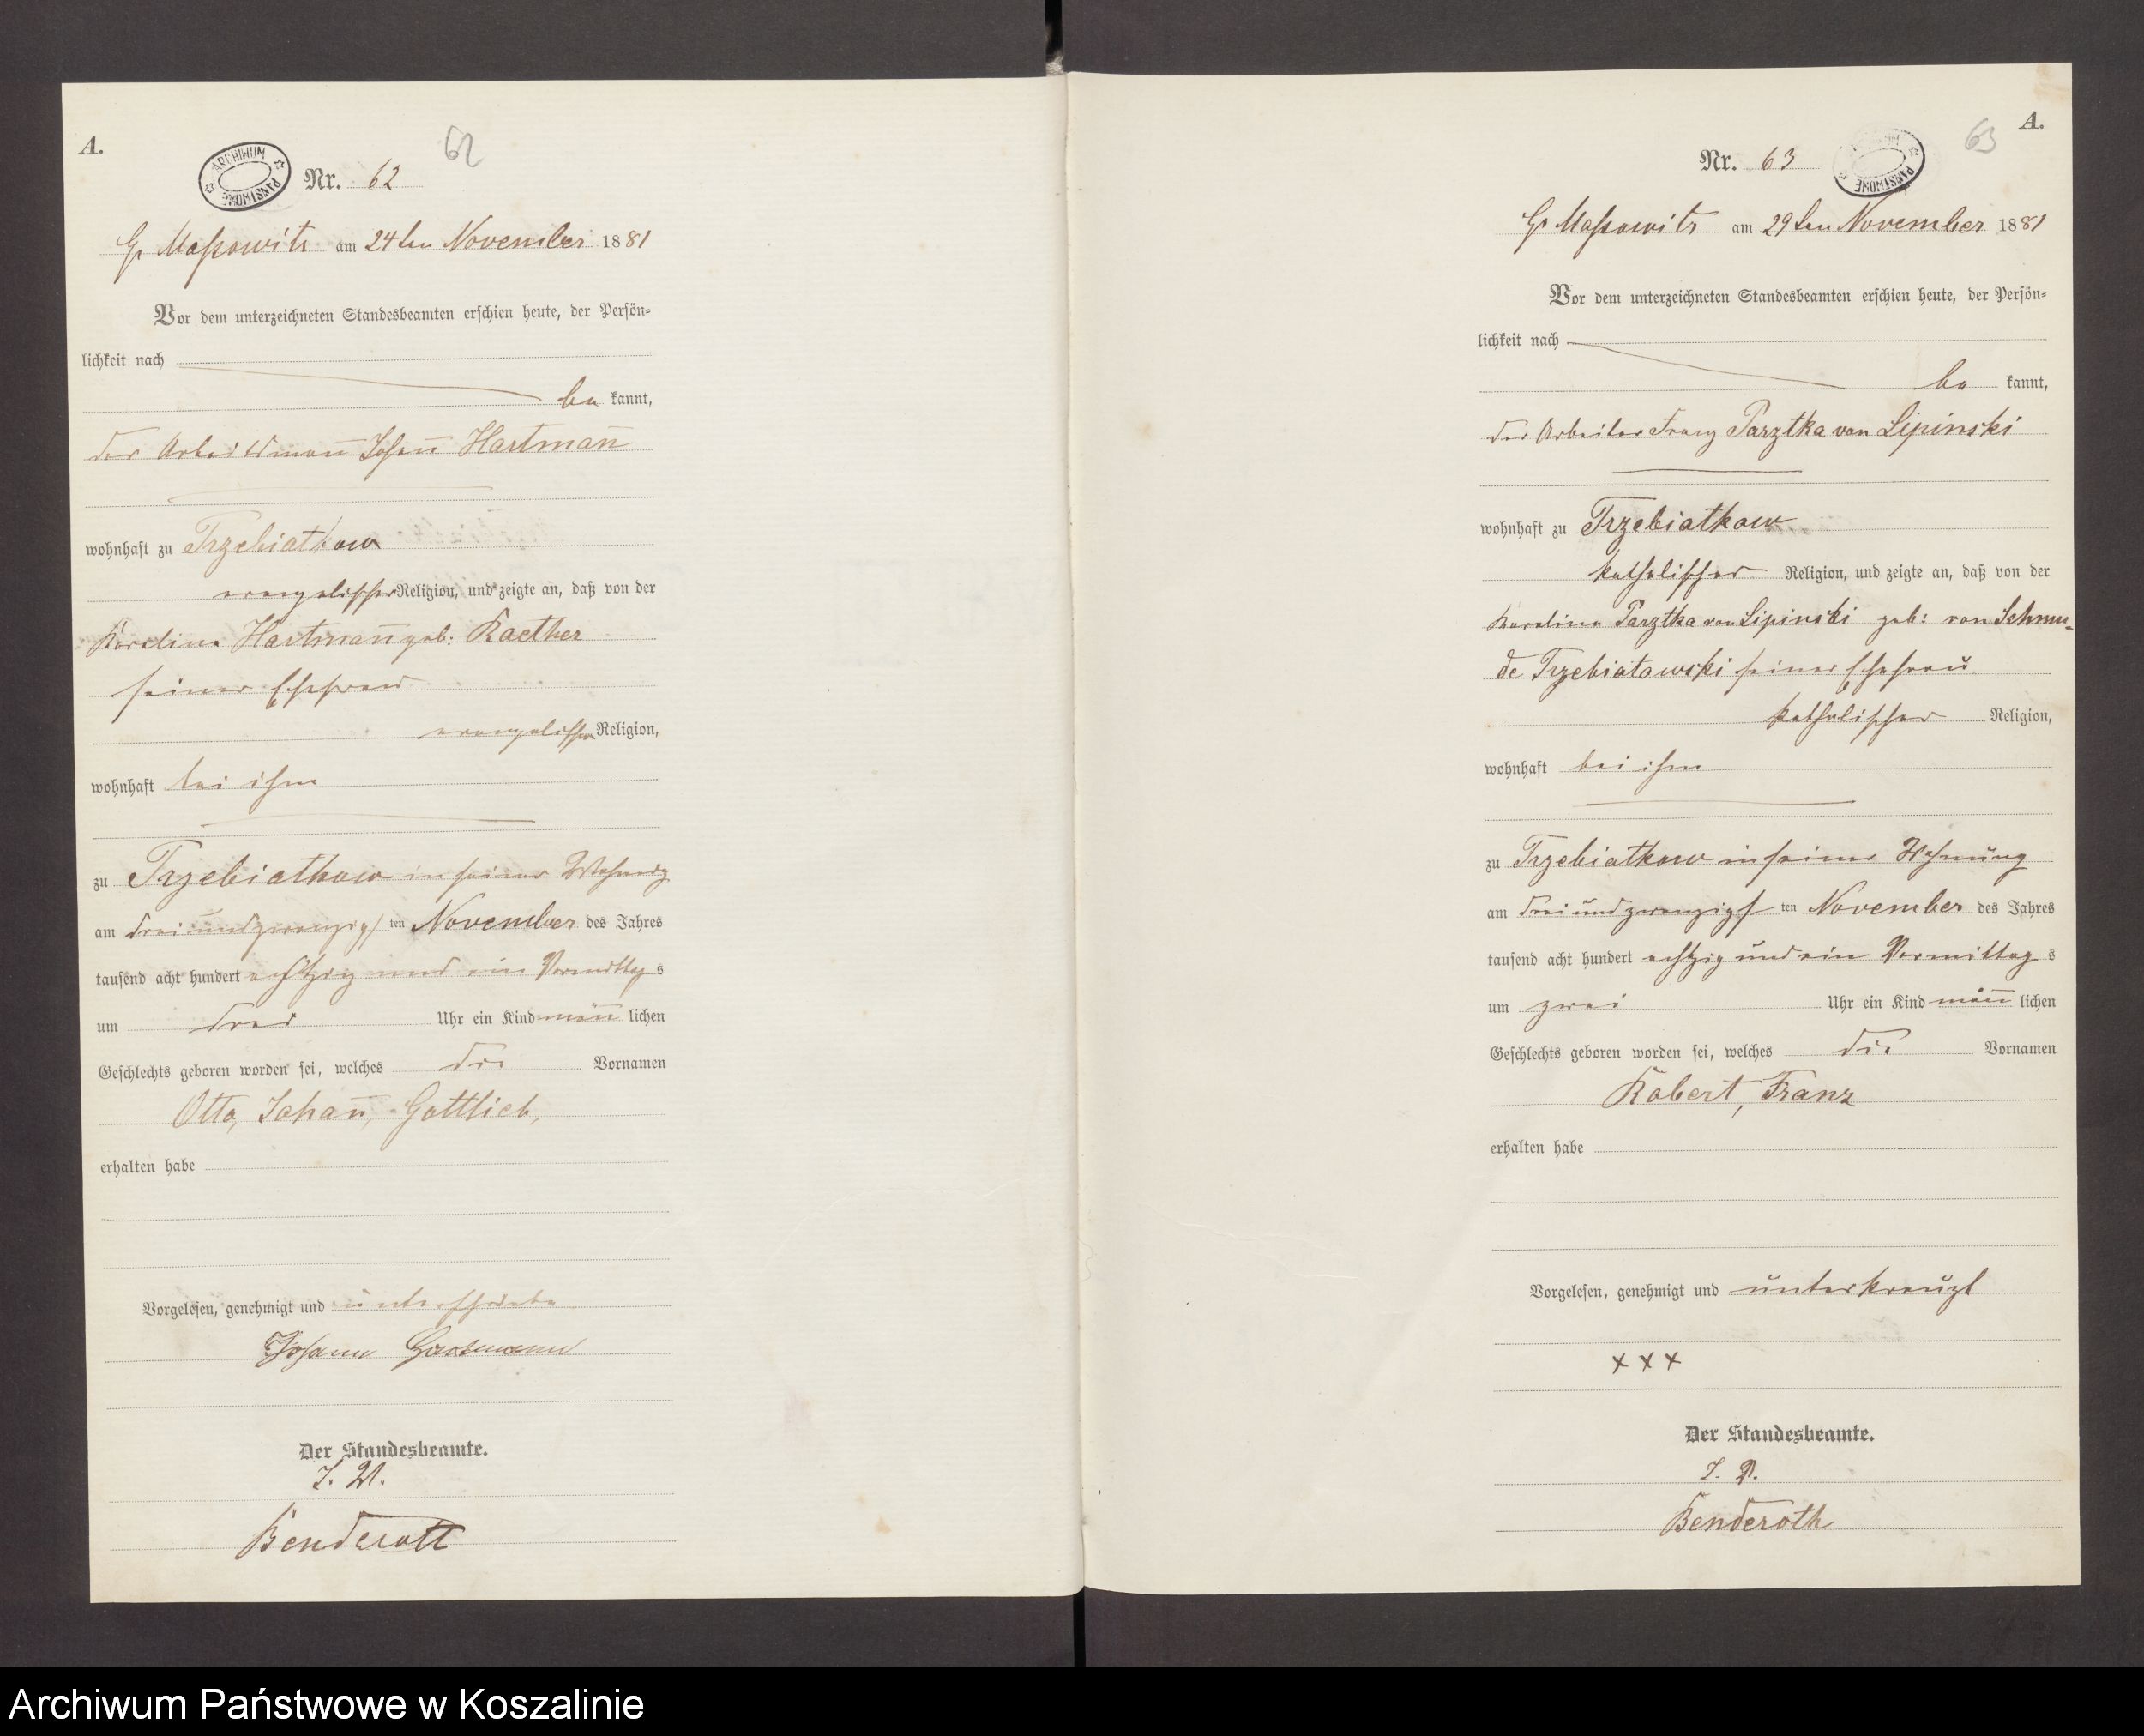 A.
ARCHIWUM PAŃSTWOWE
Nr. 62
62
Gr Maßowitz am 24ten November 1881
Vor dem unterzeichneten Standesbeamten erschien heute, der Persön-
lichkeit nach
be kannt,
der Arbeitsman̄ Johan̄ Hartman̄
wohnhaft zu Trzebiatkow
evangelischer Religion, und zeigte an, daß von der
Karoline Hartman̄ geb: Raether
seiner Ehefrau
evangelischer Religion,
wohnhaft bei ihm
zu Trzebiatkow in seiner Wohnung
am drei und zwanzigs ten November des Jahres
tausend acht hundert achtzig und ein Vormittag s
um drei Uhr ein Kind män̄ lichen
Geschlechts geboren worden sei, welches die Vornamen
Otto, Johan̄, Gottlieb,
erhalten habe
Vorgelesen, genehmigt und unterschrieben
Johann Hartmann
Der Standesbeamte.
I. V.
Benderoth
A.
63
Nr. 63
Gr Maßowitz am 29ten November 1881
Vor dem unterzeichneten Standesbeamten erschien heute, der Persön-
lichkeit nach
be kannt,
der Arbeiter Franz Parztka von Lipinski
wohnhaft zu Trzebiatkow
katholischer Religion, und zeigte an, daß von der
Karoline Parztka von Lipinski geb: von Schmu-
de Trzebiatowski seiner Ehefrau
katholischer Religion,
wohnhaft bei ihm
zu Trzebiatkow in seiner Wohnung
am drei und zwanzigs ten November des Jahres
tausend acht hundert achtzig und ein Vormittag s
um zwei Uhr ein Kind män̄ lichen
Geschlechts geboren worden sei, welches die Vornamen
Robert, Franz
erhalten habe
Vorgelesen, genehmigt und unterkreuzt
x x x
Der Standesbeamte.
I. V.
Benderoth
Archiwum Państwowe w Koszalinie